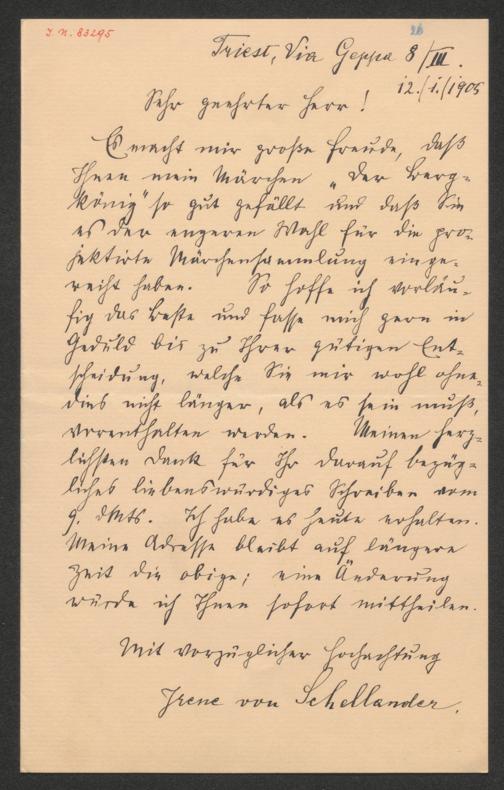 I. N. 83295
26
Triest, Via Geppa 8/III.
12./I./1905
Sehr geehrter Herr!
Es macht mir große Freude, daß
Ihnen mein Märchen „Der Berg-
könig" so gut gefällt und daß Sie
es der engeren Wahl für die pro-
jektirte Märchensammlung einge-
reiht haben. So hoffe ich vorläu-
fig das Beste und fasse mich gern in
Geduld bis zu Ihrer gütigen Ent-
scheidung, welche Sie mir wohl ohne-
dies nicht länger, als es sein muß,
vorenthalten werden. Meinen herz-
lichsten Dank für Ihr darauf bezüg-
liches liebenswürdiges Schreiben vom
9. dMts. Ich habe es heute erhalten.
Meine Adresse bleibt auf längere
Zeit die obige; eine Änderung
würde ich Ihnen sofort mittheilen.
Mit vorzüglicher Hochachtung
Irene von Schellander.